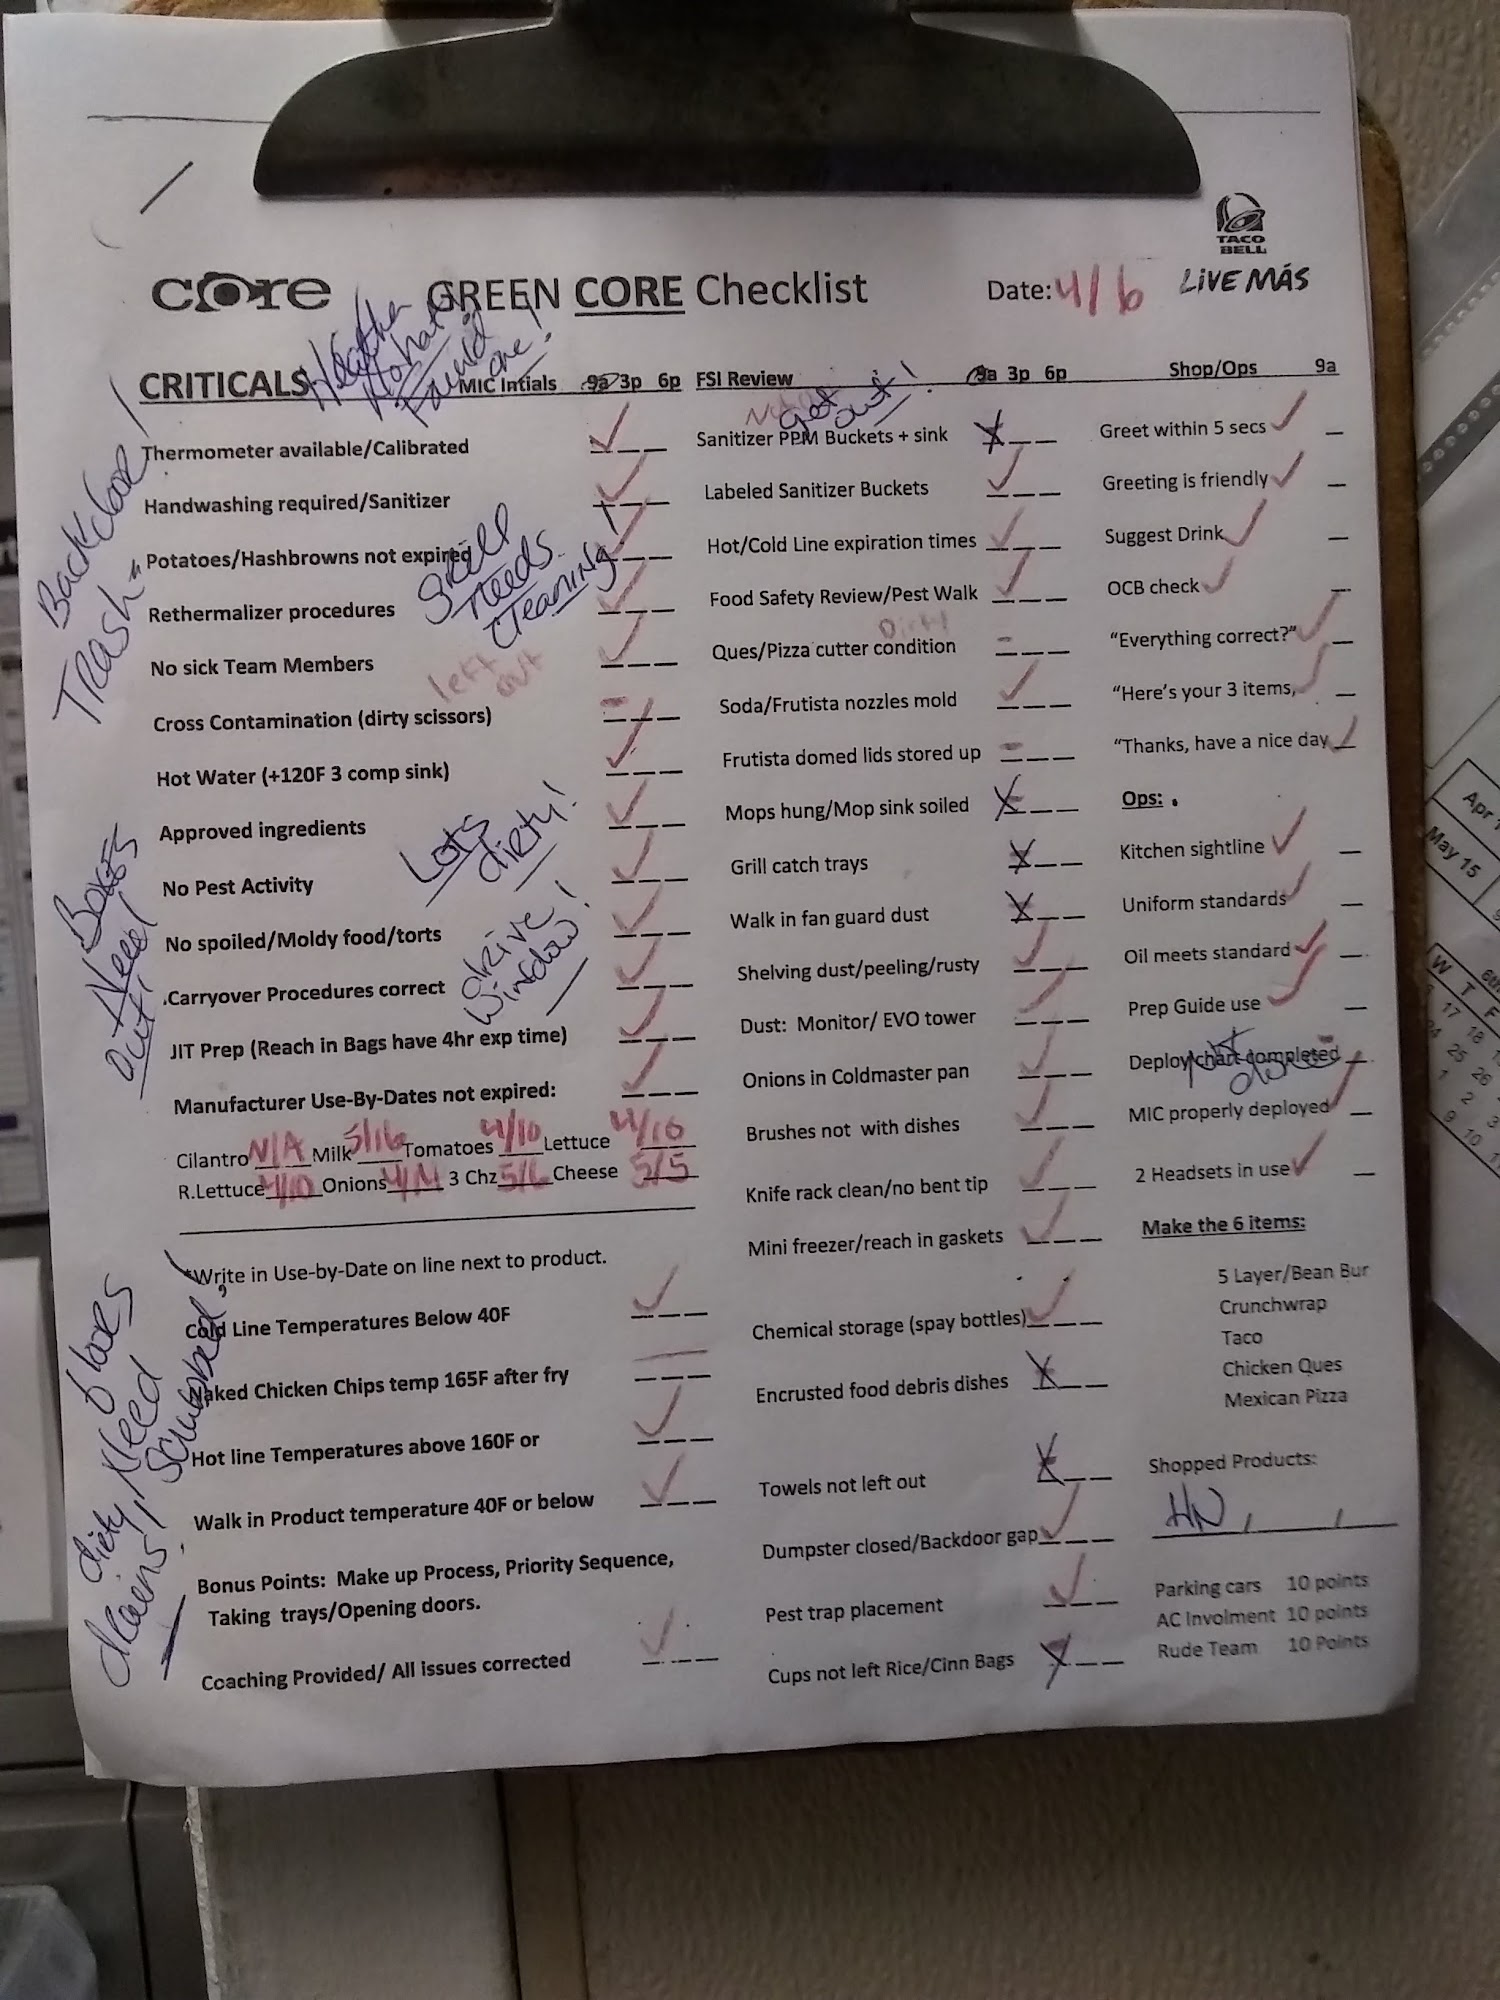 TACO
BELL
core GREEN CORE Checklist Date: 4/6 LIVE MÁS
Heather
what
Found
one!
CRITICALS MIC Intials 9a 3p 6p FSI Review 9a 3p 6p Shop/Ops 9a
Not get out!
Thermometer available/Calibrated
Handwashing required/Sanitizer
Potatoes/Hashbrowns not expired
Rethermalizer procedures
No sick Team Members
left out
Cross Contamination (dirty scissors)
Hot Water (+120F 3 comp sink)
Approved ingredients
No Pest Activity
No spoiled/Moldy food/torts
Carryover Procedures correct
JIT Prep (Reach in Bags have 4hr exp time)
Manufacturer Use-By-Dates not expired:
Cilantro N/A Milk 5/16 Tomatoes 4/10 Lettuce 4/16
R.Lettuce 4/10 Onions 3 Chz 5/6 Cheese 5/5
*Write in Use-by-Date on line next to product.
Cold Line Temperatures Below 40F
Naked Chicken Chips temp 165F after fry
Hot line Temperatures above 160F or
Walk in Product temperature 40F or below
Bonus Points: Make up Process, Priority Sequence,
Taking trays/Opening doors.
Coaching Provided/ All issues corrected
Back door!
Trash
Grill
needs
cleaning!
Lots
dirty!
drive
window!
Boxes
Need
out!
floors
dirty, Need
drains, scrubbed,
Sanitizer PPM Buckets + sink
Labeled Sanitizer Buckets
Hot/Cold Line expiration times
Food Safety Review/Pest Walk
Dirty
Ques/Pizza cutter condition
Soda/Frutista nozzles mold
Frutista domed lids stored up
Mops hung/Mop sink soiled
Grill catch trays
Walk in fan guard dust
Shelving dust/peeling/rusty
Dust: Monitor/ EVO tower
Onions in Coldmaster pan
Brushes not with dishes
Knife rack clean/no bent tip
Mini freezer/reach in gaskets
Chemical storage (spay bottles)
Encrusted food debris dishes
Towels not left out
Dumpster closed/Backdoor gap
Pest trap placement
Cups not left Rice/Cinn Bags
Greet within 5 secs
Greeting is friendly
Suggest Drink
OCB check
“Everything correct?”
“Here’s your 3 items,
“Thanks, have a nice day
Ops:
Kitchen sightline
Uniform standards
Oil meets standard
Prep Guide use
Deploy chart completed
Not done
MIC properly deployed
2 Headsets in use
Make the 6 items:
5 Layer/Bean Bur
Crunchwrap
Taco
Chicken Ques
Mexican Pizza
Shopped Products:
HN, ,
Parking cars 10 points
AC Involment 10 points
Rude Team 10 Points
Apr
May 15
W T F
17 18
24 25 26
1 2 3
9 10